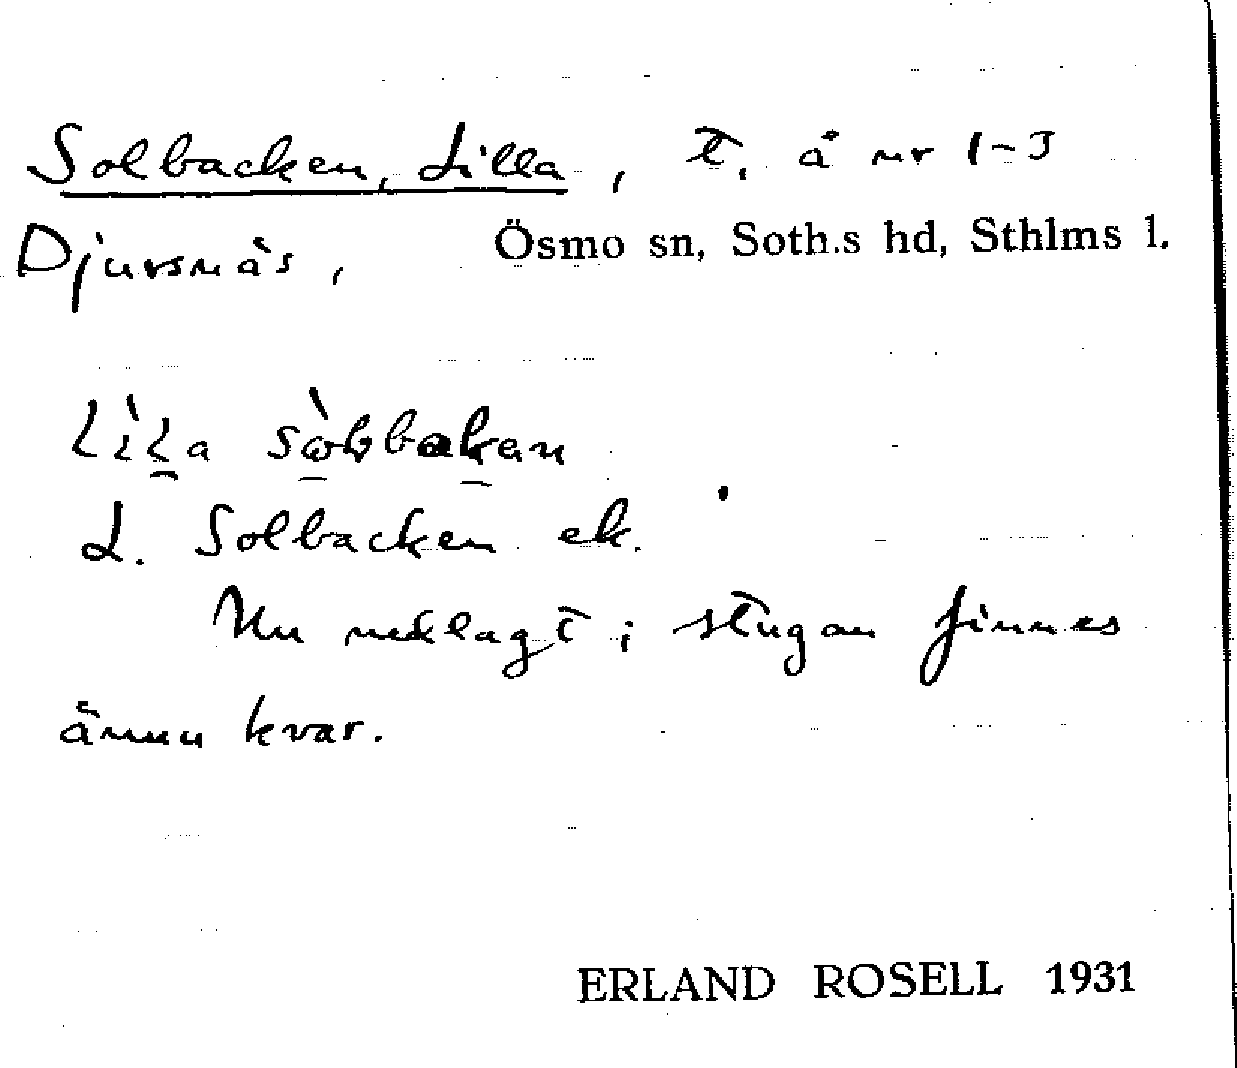 Solbacken, Lilla, t. å nr 1-3
Djursnäs, Ösmo sn, Soth.s hd, Sthlms l.
L. Solbacken ek.
Nu nedlagt; stugan finnes
ännu kvar.
ERLAND ROSELL 1931